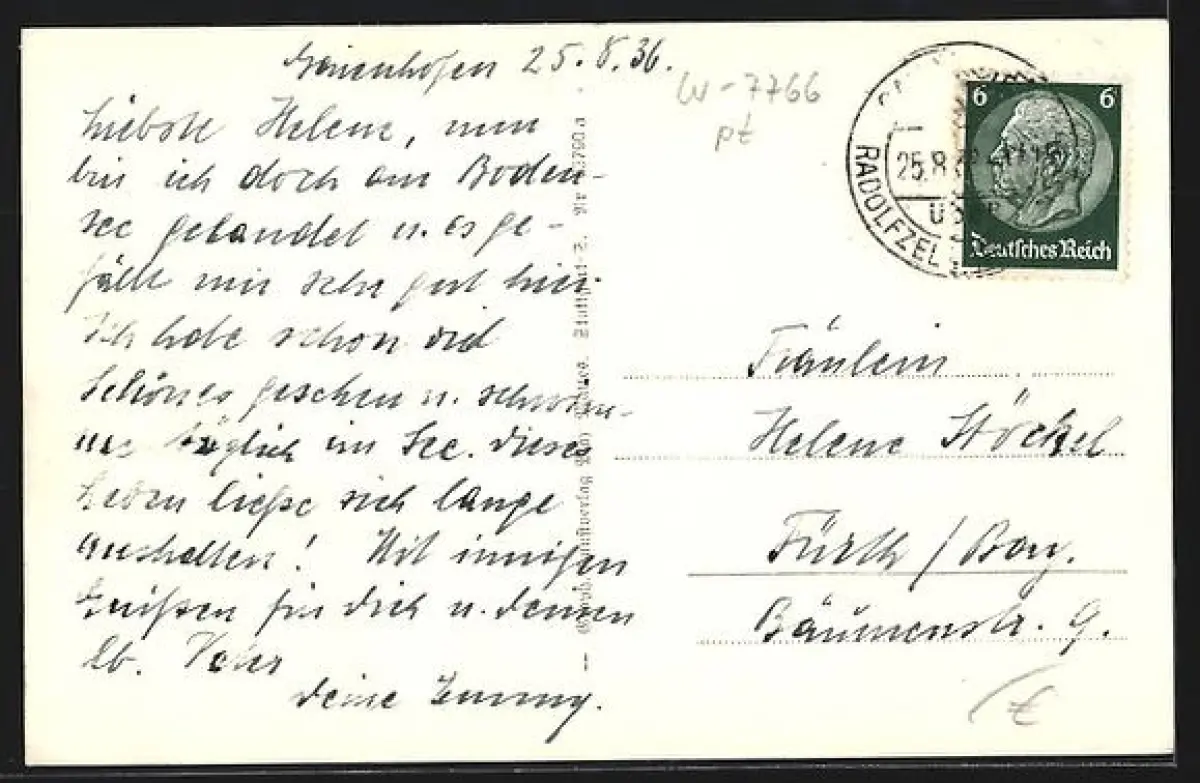 Gaienhofen 25.8.36.
Liebste Helene, nun
bin ich doch am Boden-
see gelandet u. es ge-
fällt mir sehr gut hier.
Ich habe schon viel
Schönes gesehen u. schwim-
me täglich im See. Dieses
Leben ließe sich lange
aushalten! Mit innigen
Grüßen für dich u. deinen
lb. Vater
deine
W-7766
pt
RADOLFZELL
25.8.
6 6
Deutsches Reich
Fräulein
Helene Stöckel
Fürth / Bay.
Bäumenstr. 9.